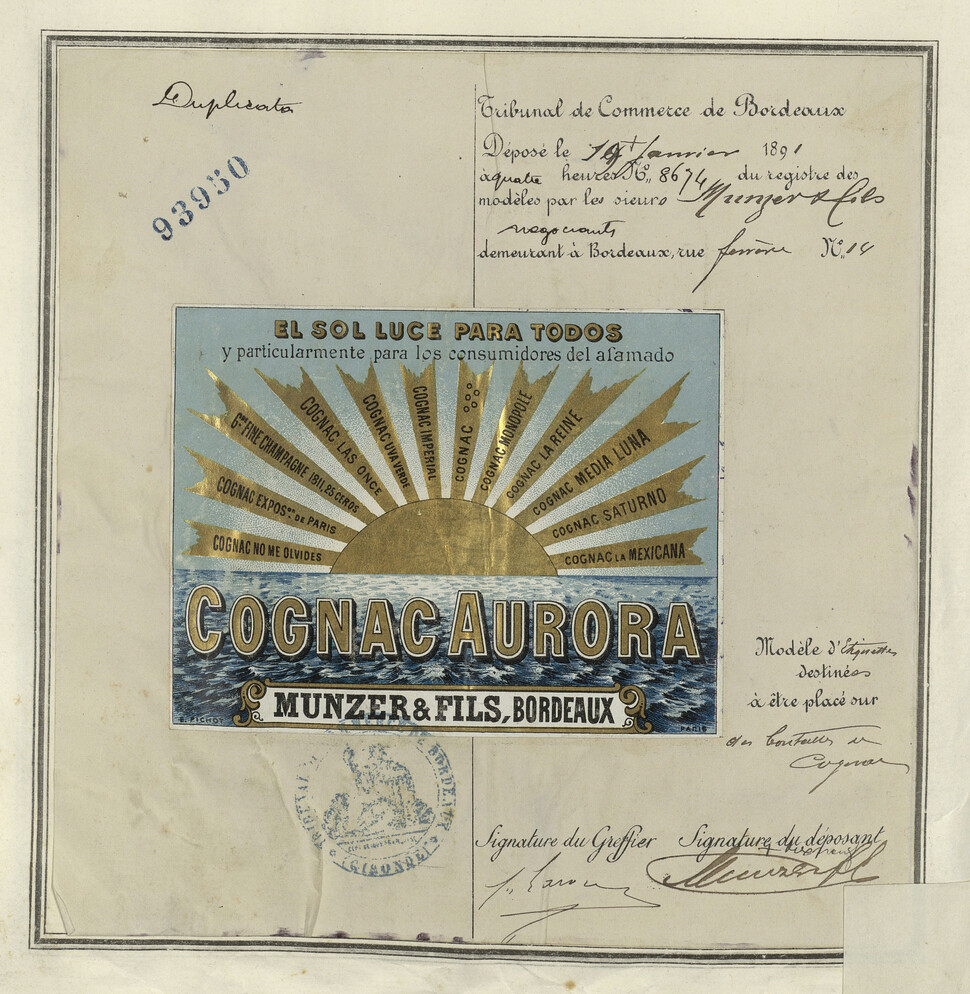 Duplicata
93950
Tribunal de Commerce de Bordeaux
Déposé le 19 Janvier 1891
à quatre heures N° 8674 du registre des
modèles par les sieurs Munzer & Fils
negociants
demeurant à Bordeaux, rue ferrère N° 14
EL SOL LUCE PARA TODOS
y particularmente para los consumidores del afamado
COGNAC NO ME OLVIDES
COGNAC EXPOS.on DE PARIS
Gde FINE CHAMPAGNE 1811, 25 CEROS
COGNAC LAS ONCE
COGNAC UVA VERDE
COGNAC IMPERIAL
COGNAC
COGNAC MONOPOLE
COGNAC LA REINE
COGNAC MEDIA LUNA
COGNAC SATURNO
COGNAC LA MEXICANA
COGNAC AURORA
MUNZER & FILS, BORDEAUX
E. PICHOT
PARIS
Modèle d'Etiquettes
destinées
à être placé sur
des bouteilles de
Cognac
TRIBUNAL DE COMMERCE DE BORDEAUX
(GIRONDE)
Signature du Greffier Signature du déposant
Munzer fils